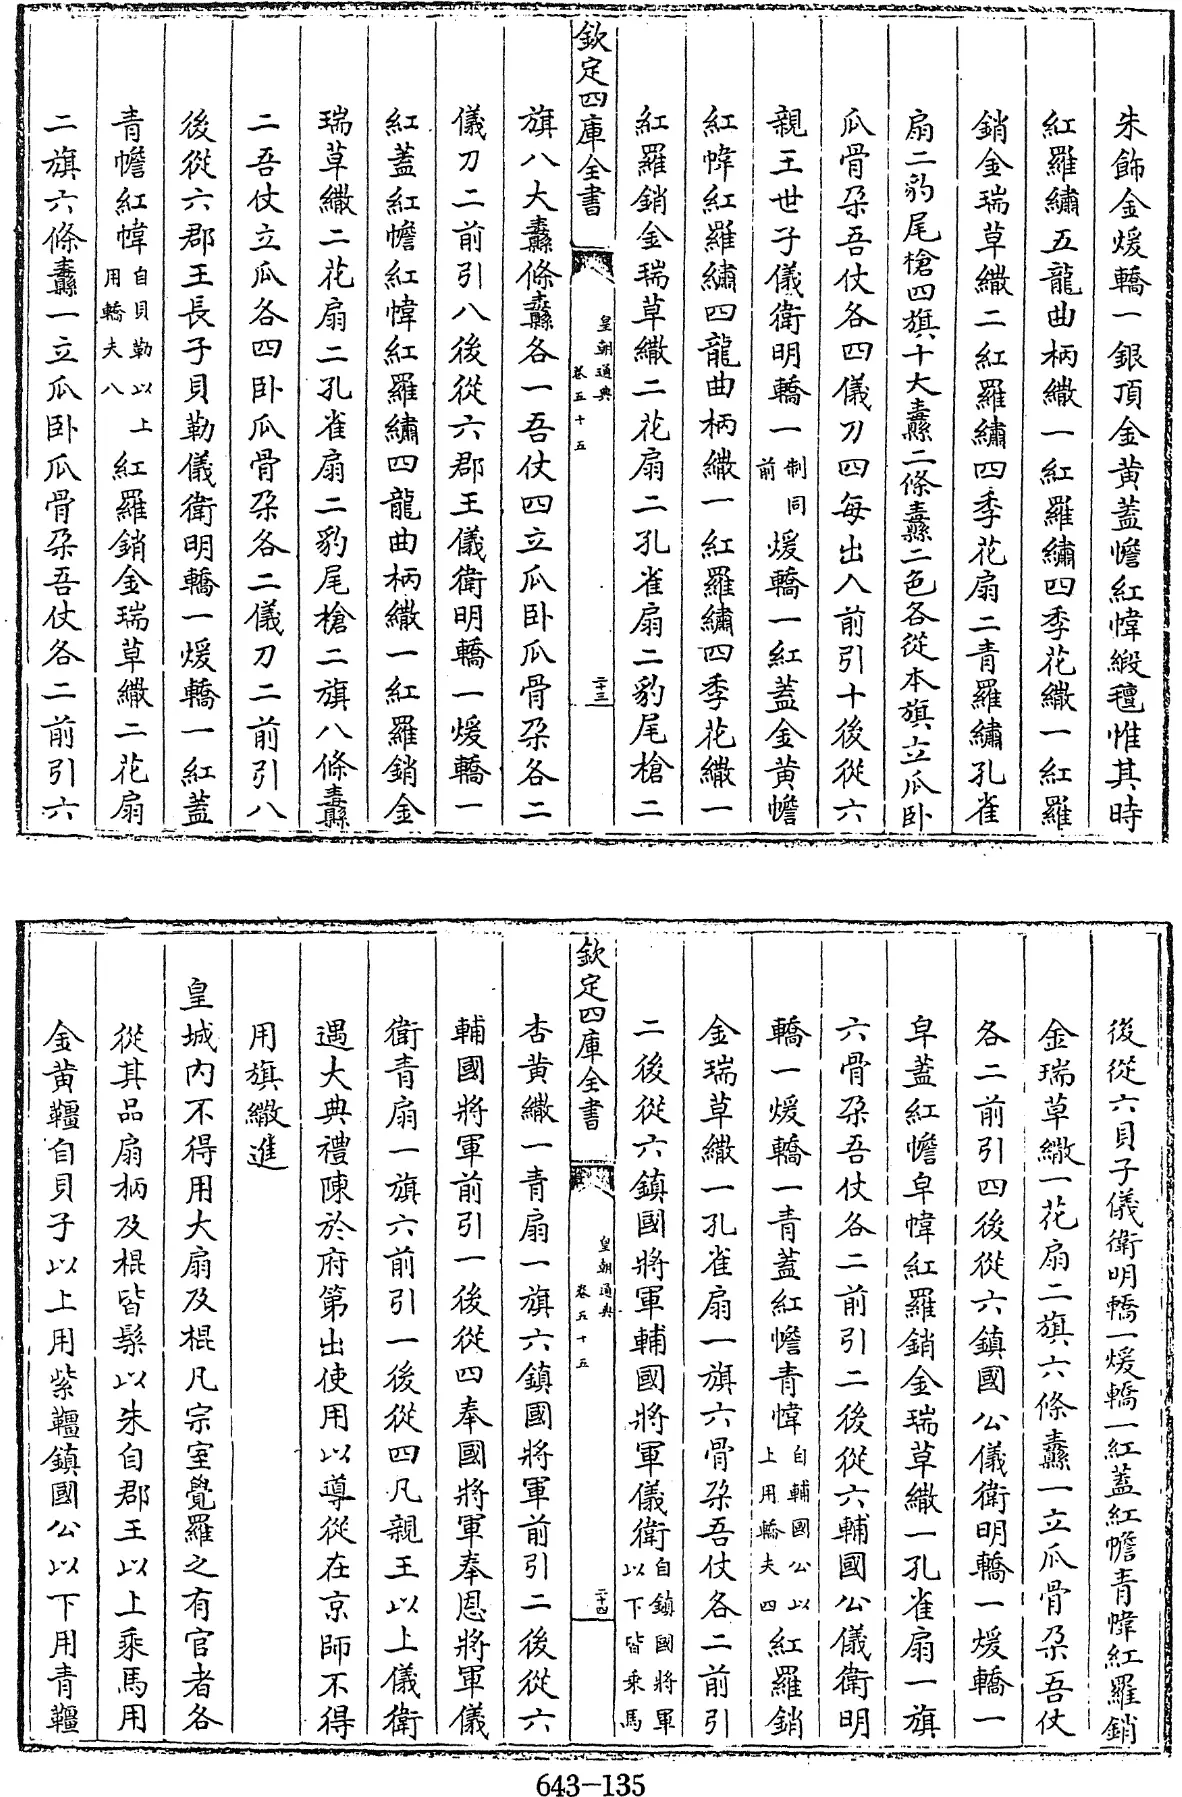 朱飾金煖轎一銀頂金黃蓋幨紅幃緞氊惟其時
紅羅繡五龍曲柄繖一紅羅繡四季花繖一紅羅
銷金瑞草繖二紅羅繡四季花扇二青羅繡孔雀
扇二豹尾槍四旗十大纛二條纛二色各從本旗立瓜卧
瓜骨朶吾仗各四儀刀四每出入前引十後從六
親王世子儀衛明轎一制同前煖轎一紅蓋金黃幨
紅幃紅羅繡四龍曲柄繖一紅羅繡四季花繖一
紅羅銷金瑞草繖二花扇二孔雀扇二豹尾槍二
欽定四庫全書
皇朝通典
卷五十五
二十三
旗八大纛條纛各一吾仗四立瓜卧瓜骨朶各二
儀刀二前引八後從六郡王儀衛明轎一煖轎一
紅蓋紅幨紅幃紅羅繡四龍曲柄繖一紅羅銷金
瑞草繖二花扇二孔雀扇二豹尾槍二旗八條纛
二吾仗立瓜各四卧瓜骨朶各二儀刀二前引八
後從六郡王長子貝勒儀衛明轎一煖轎一紅蓋
青幨紅幃自貝勒以上用轎夫八紅羅銷金瑞草繖二花扇
二旗六條纛一立瓜卧瓜骨朶吾仗各二前引六
後從六貝子儀衛明轎一煖轎一紅蓋紅幨青幃紅羅銷
金瑞草繖一花扇二旗六條纛一立瓜骨朶吾仗
各二前引四後從六鎮國公儀衛明轎一煖轎一
皁蓋紅幨皁幃紅羅銷金瑞草繖一孔雀扇一旗
六骨朶吾仗各二前引二後從六輔國公儀衛明
轎一煖轎一青蓋紅幨青幃自輔國公以上用轎夫四紅羅銷
金瑞草繖一孔雀扇一旗六骨朶吾仗各二前引
二後從六鎮國將軍輔國將軍儀衛自鎮國將軍以下皆乘馬
欽定四庫全書
皇朝通典
卷五十五
二十四
杏黃繖一青扇一旗六鎮國將軍前引二後從六
輔國將軍前引一後從四奉國將軍奉恩將軍儀
衛青扇一旗六前引一後從四凡親王以上儀衛
遇大典禮陳於府第出使用以導從在京師不得
用旗繖進
皇城内不得用大扇及棍凡宗室覺羅之有官者各
從其品扇柄及棍皆髹以朱自郡王以上乘馬用
金黃韁自貝子以上用紫韁鎮國公以下用青韁
643-135